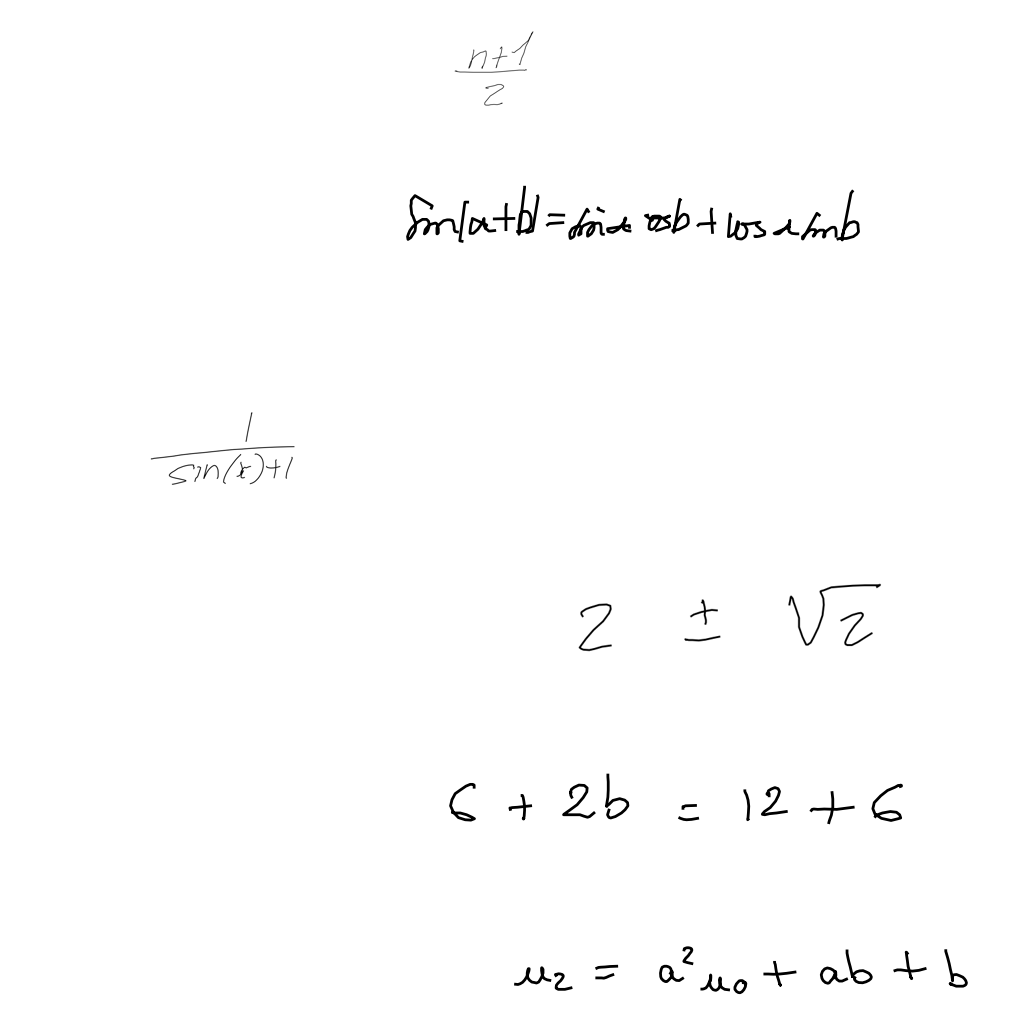 \frac{n+1}{2}
sin(a+b)=sin a cos b+cos a sin b
\frac{1}{sin(x)+1}
2 ± \sqrt{2}
6 + 2b = 12 + 6
u_2 = a^2 u_0 + ab + b